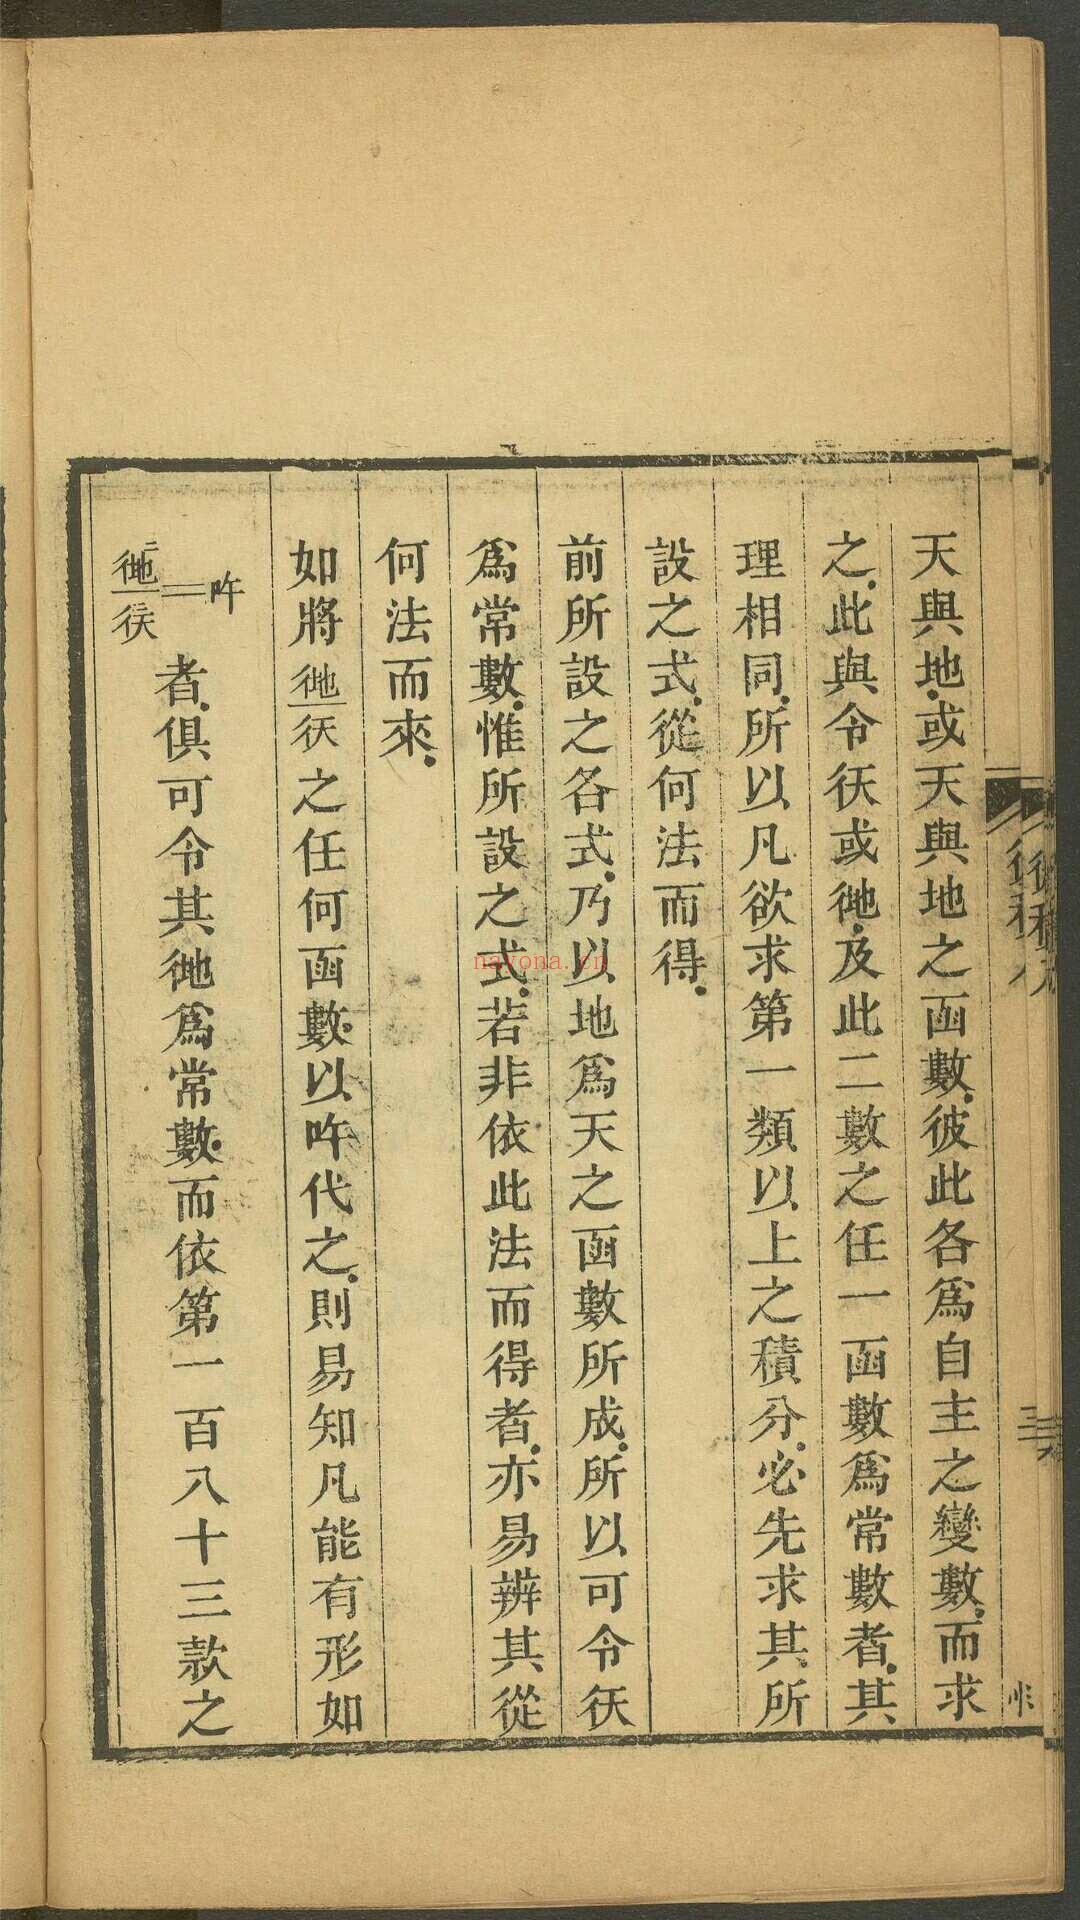 天與地、或天與地之函數、彼此各爲自主之變數、而求
之、此與令彳天或彳地、及此二數之任一函數爲常數者、其
理相同、所以凡欲求第一類以上之積分、必先求其所
設之式、從何法而得、
前所設之各式、乃以地爲天之函數所成、所以可令彳天
爲常數、惟所設之式、若非依此法而得者、亦易辨其從
何法而來、
如將彳地彳天之任何函數、以吘代之、則易知凡能有形如
吘＝二彳地二彳天者、俱可令其彳地爲常數、而依第一百八十三款之
nayona.cn